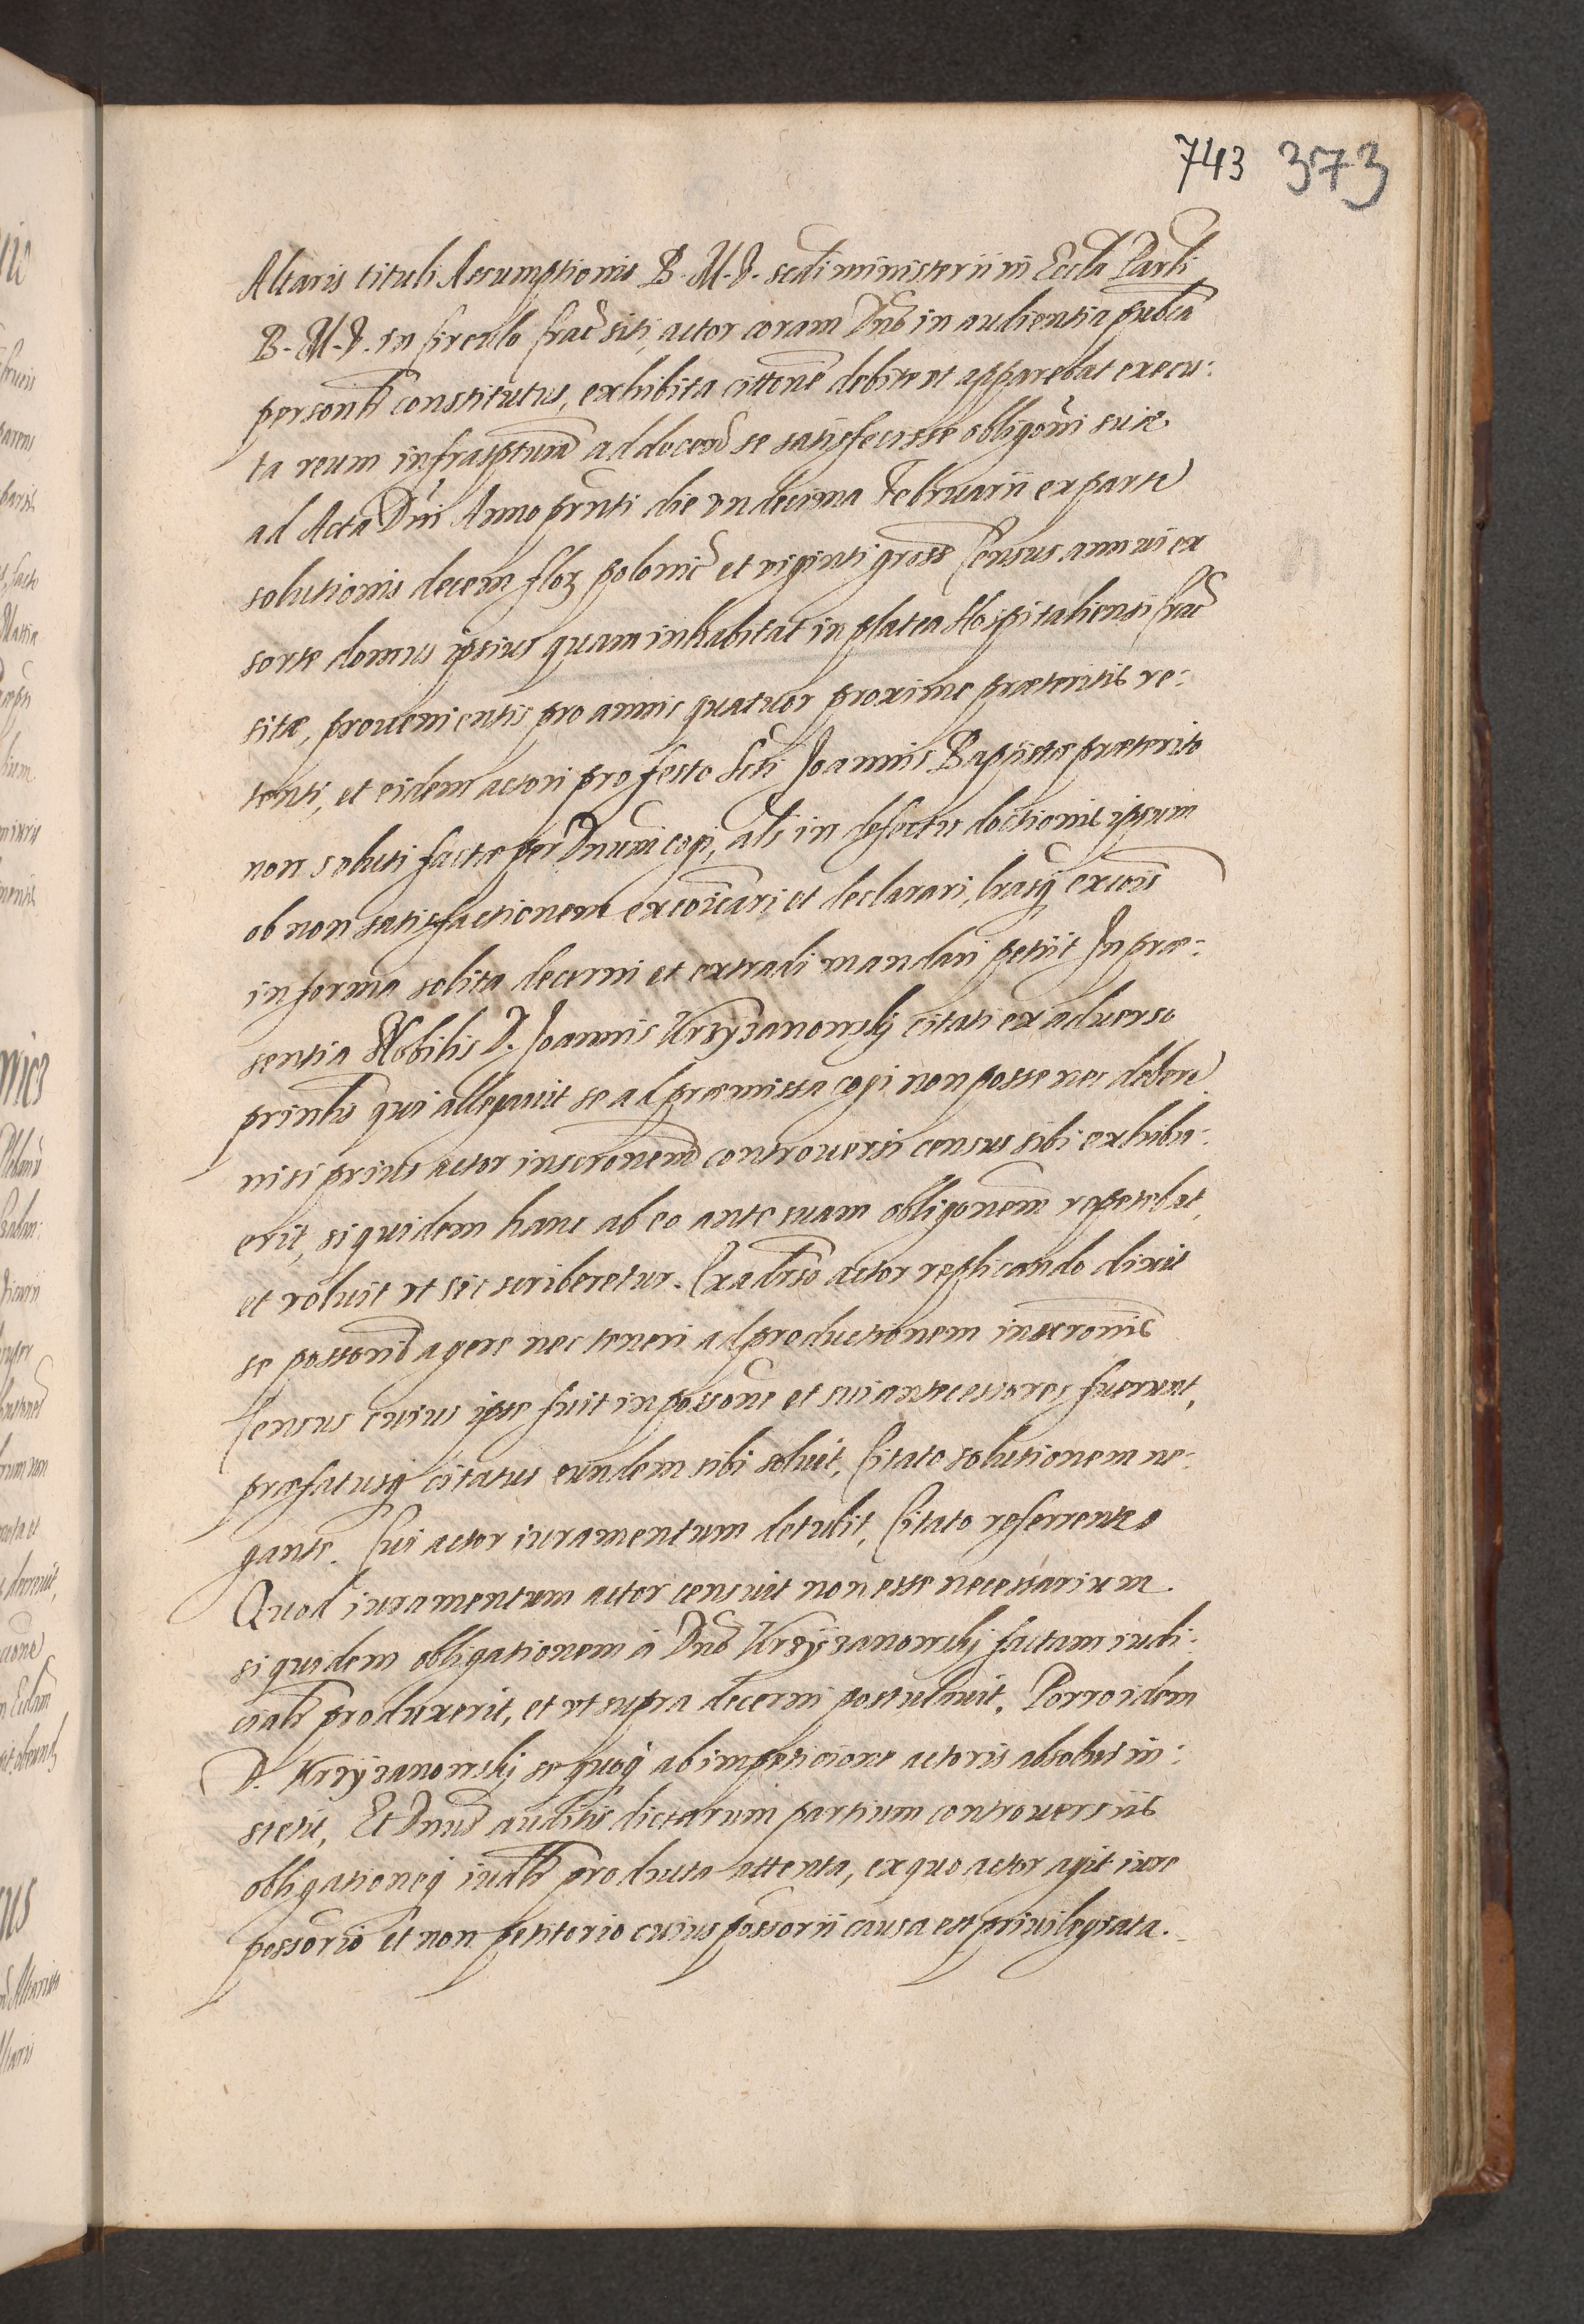 743 373
Altaris tituli Assumptionis B. M. V. scdi ministerii in Eccla Parli
B. M. V. in Circulo Crac siti, actor coram Dno in audientia publca
personlr constitutus, exhibita cittone debite ut apparebat execu:
ta reum infrascptum ad docend se satisfecisse obligoni suæ
ad Acta Dni Anno prnti die undecima Februarii ex parte
solutionis decem flor polonic et viginti gross Census annui ex
sorte domus ipsius quam inhabitat in platea Hospitaliensi Crac
sitæ, prouenientis pro annis quatuor proxime præteritis re:
tenti, et eidem actori pro festo Scti Joannis Baptistæ præterito
non soluti factæ per Dnum cogi, als in defectu doctionis ipsum
ob non satisfactionem excoicari et declarari, lrasq excois
in forma solita decerni et extradi mandari petiit In præ:
sentia Nobilis D. Joannis Krzyzanowskj citati ex aduerso
prinlis qui allegauit se ad præmissa cogi non posse nec debere
nisi prius actor inscronem controuersi census sibi exhibu:
erit, siquidem hanc ab eo ante suam obligonem repetebat,
et voluit ut sic scriberetur. Ex aduerso actor replicando dixit
se possorio agere nec teneri ad productionem inscronis
Census cuius ipse fuit in possone et sui antecessores fuerunt,
præfatusq citatus eundem sibi soluit, Citato solutionem ne:
gante. Cui actor iuramentum detulit, Citato referrente
Quod iuramentum actor censuit non esse necessarium.
siquidem obligationem à Dno Krzyzanowskj factam iudi:
cialr produxerit, et ut supra decerni postulauit. Porro idem
D. Krzyzanowskj se quoq ab impeticione actoris absolui in:
stetit, Et Dnus auditis dictarum partium controuersiis
obligationeq iudlr producta attenta, ex quo actor agit iure
possorio et non petitorio cuius possorii causa est priuilegiata.